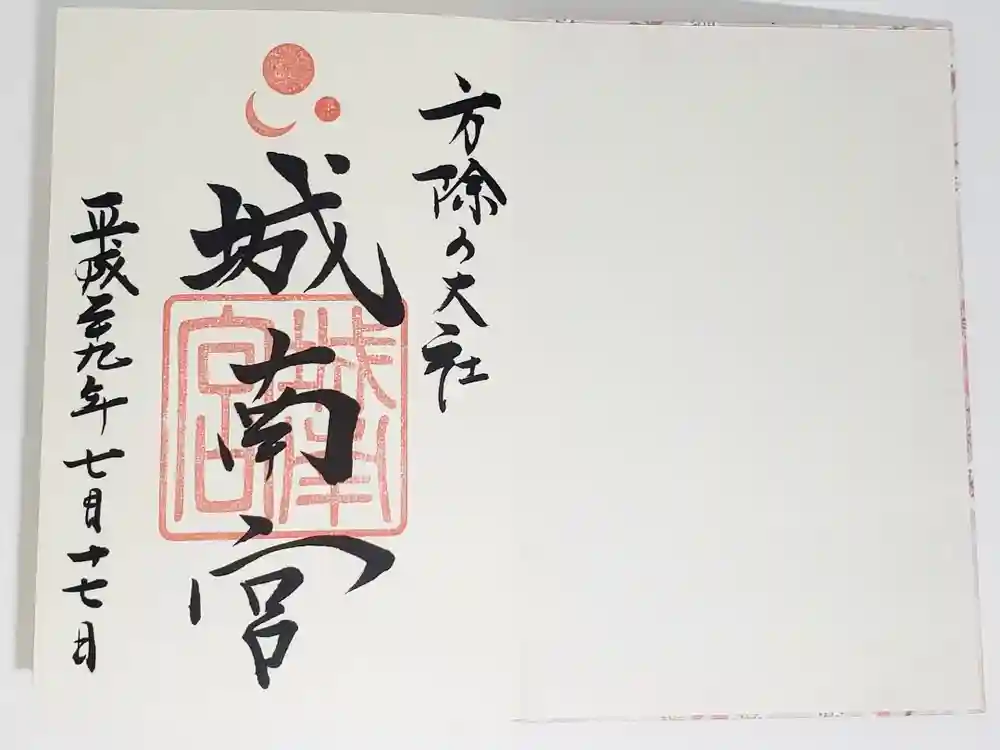 方除の大社
城南宮
城南宮
平成二十九年七月十七日